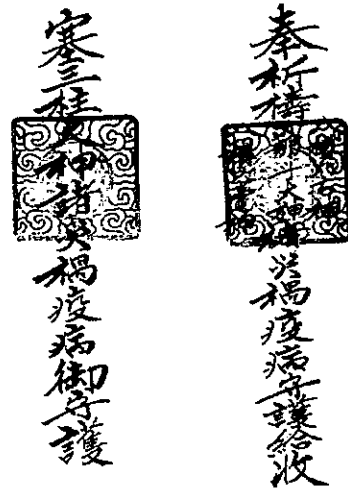 奉祈祷大神諸災禍疫病守護給攸
塞三柱大神諸災禍疫病御守護